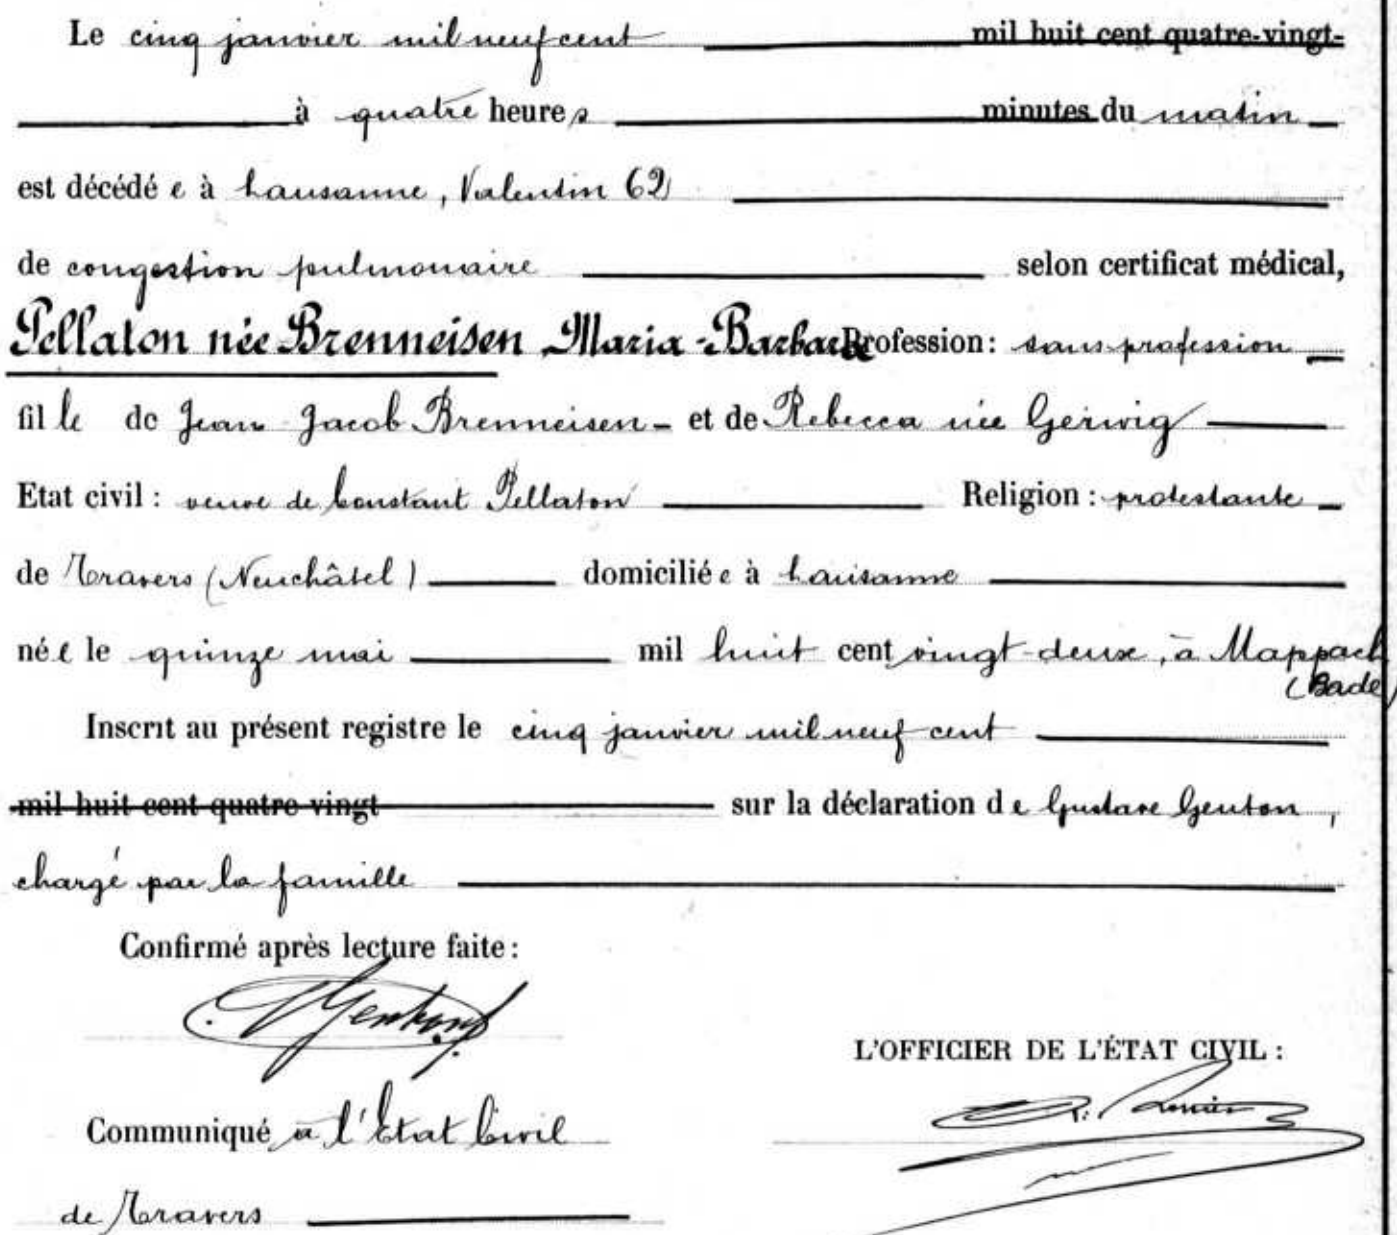 Le cinq janvier mil neuf cent mil huit cent quatre-vingt-
à quatre heures minutes du matin
est décédée à Lausanne, Valentin 62
de congestion pulmonaire selon certificat médical,
Pellaton née Brenneisen Maria-Barbara Profession: sans profession
fille de Jean Jacob Brenneisen - et de Rebecca née Gerwig
Etat civil: veuve de Constant Pellaton Religion: protestante
de Travers (Neuchâtel) domiciliée à Lausanne
née le quinze mai mil huit cent vingt-deux, à Mappach
(Bade)
Inscrit au présent registre le cinq janvier mil neuf cent
mil huit cent quatre vingt sur la déclaration de Gustave Genton,
chargé par la famille
Confirmé après lecture faite:
Genton
L'OFFICIER DE L'ÉTAT CIVIL:
Communiqué à l'Etat Civil
de Travers